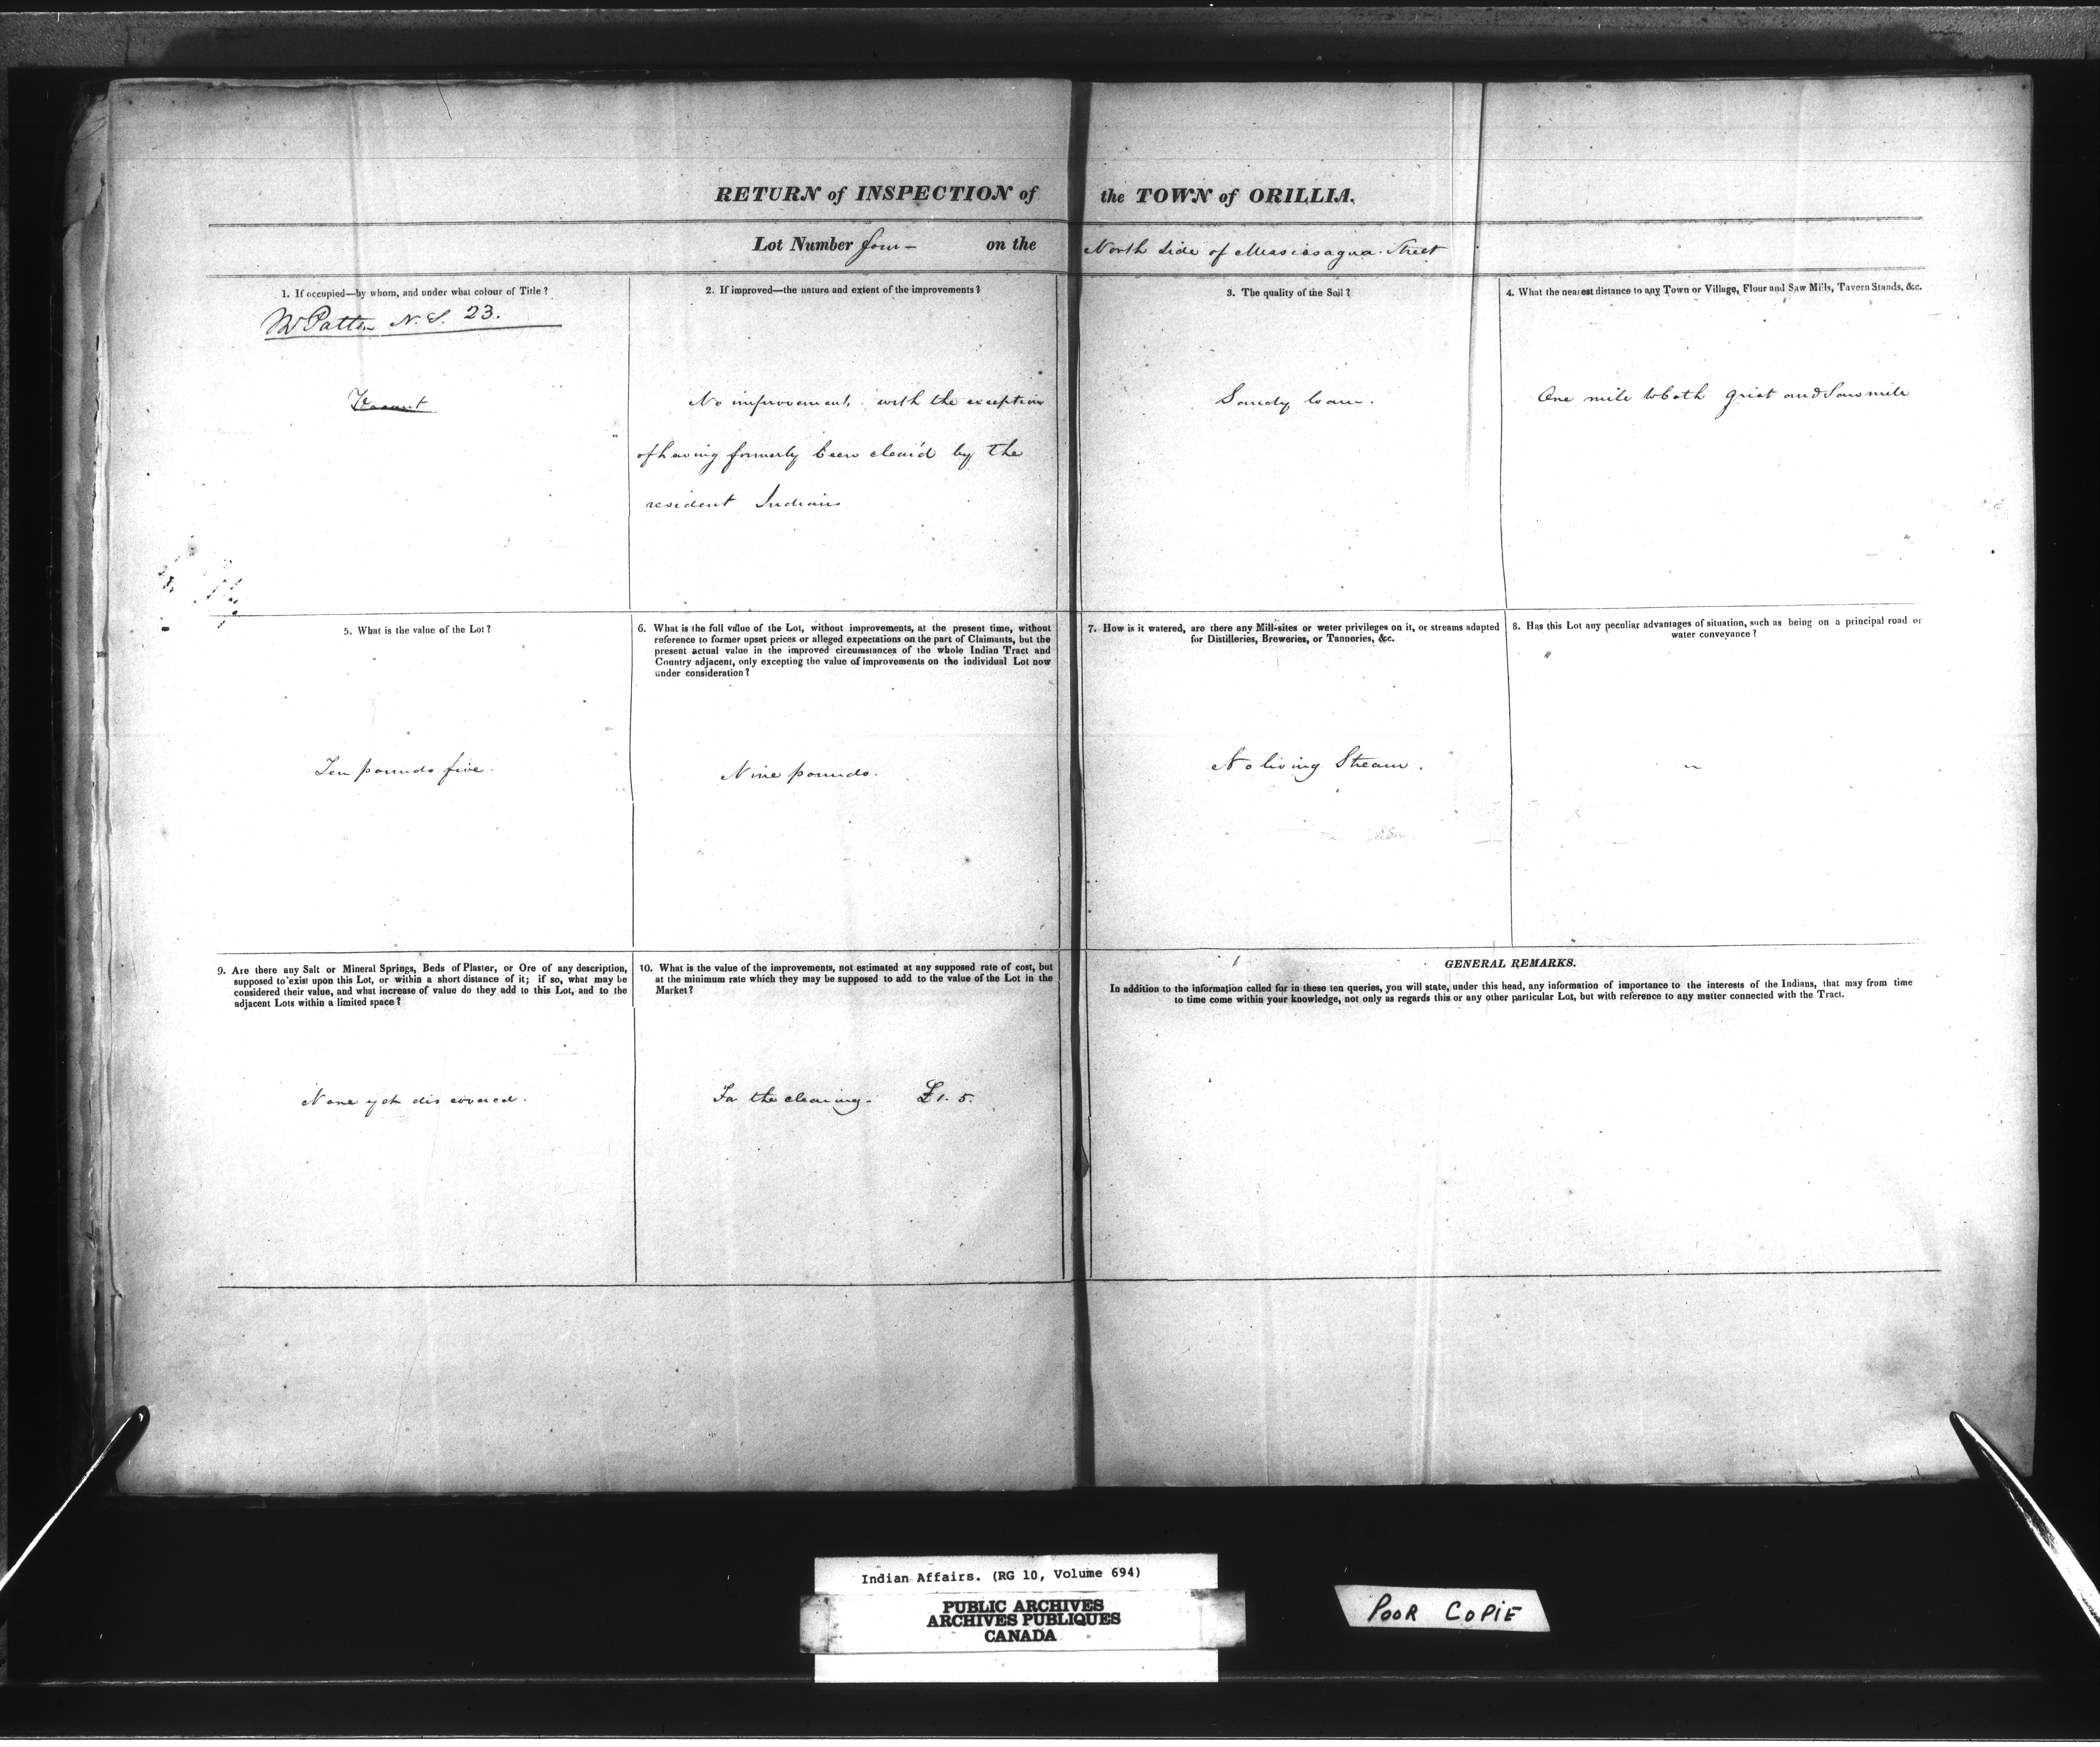 RETURN of INSPECTION of the TOWN of ORILLIA.
Lot Number four - on the North Side of Massassagua Street
1. If occupied—by whom, and under what colour of Title?
Mr Patton N. S. 23.
Vacant
2. If improved—the nature and extent of the improvements?
No improvement, with the exception
of having formerly been clear'd by the
resident Indians
3. The quality of the Soil?
Sandy loam.
4. What the nearest distance to any Town or Village, Flour and Saw Mills, Tavern Stands, &c.
One mile to both grist and Saw mill
5. What is the value of the Lot?
Ten pounds five.
6. What is the full value of the Lot, without improvements, at the present time, without
reference to former upset prices or alleged expectations on the part of Claimants, but the
present actual value in the improved circumstances of the whole Indian Tract and
Country adjacent, only excepting the value of improvements on the individual Lot now
under consideration?
Nine pounds.
7. How is it watered, are there any Mill-sites or water privileges on it, or streams adapted
for Distilleries, Breweries, or Tanneries, &c.
No living Stream.
8. Has this Lot any peculiar advantages of situation, such as being on a principal road or
water conveyance?
9. Are there any Salt or Mineral Springs, Beds of Plaster, or Ore of any description,
supposed to exist upon this Lot, or within a short distance of it; if so, what may be
considered their value, and what increase of value do they add to this Lot, and to the
adjacent Lots within a limited space?
None yet discovered.
10. What is the value of the improvements, not estimated at any supposed rate of cost, but
at the minimum rate which they may be supposed to add to the value of the Lot in the
Market?
For the clearing - £1. 5.
GENERAL REMARKS.
In addition to the information called for in these ten queries, you will state, under this head, any information of importance to the interests of the Indians, that may from time
to time come within your knowledge, not only as regards this or any other particular Lot, but with reference to any matter connected with the Tract.
Indian Affairs. (RG 10, Volume 694)
PUBLIC ARCHIVES
ARCHIVES PUBLIQUES
CANADA
POOR COPIE